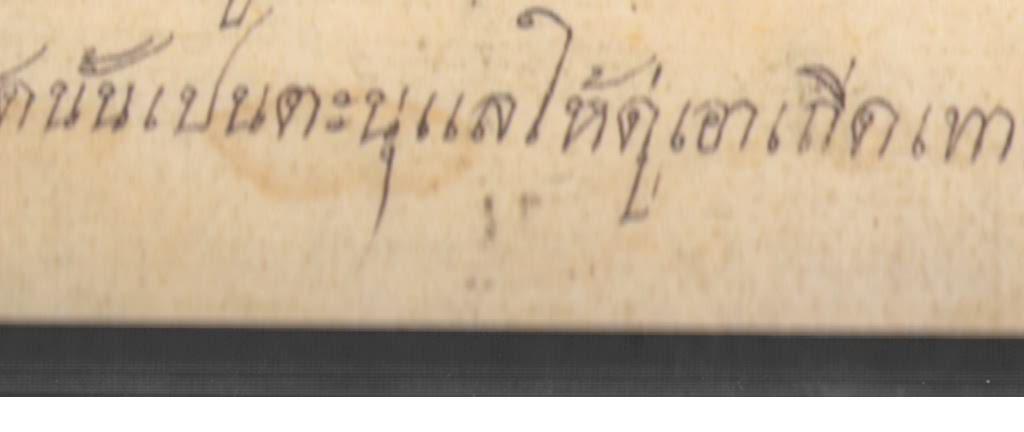 นั้นเปนตะนูแลให้ดู่เอาเถีดเทา